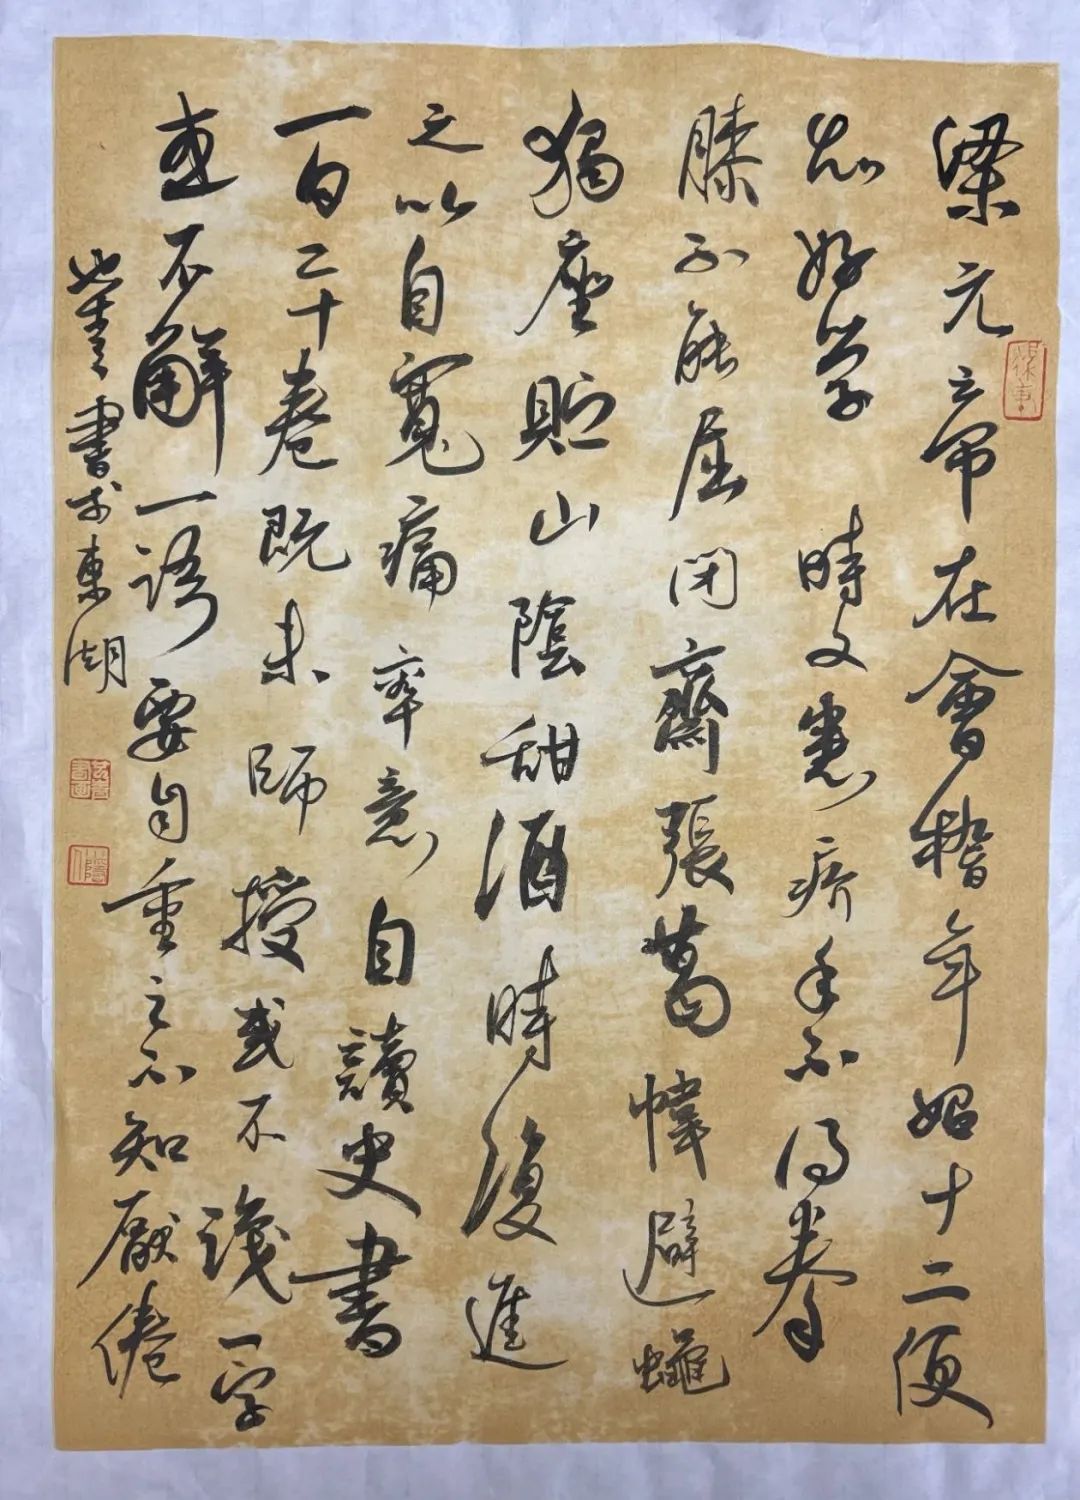 梁元帝在會稽年始十二便
好学時又患疥手不得拳
膝不能屈閑齋張葛幃避蠅
獨座貯山陰甜酒時復進
之以自寬痛率意自讀史書
一日二十卷既未師授或不識一字
或不解一語要自重之不知厭倦
書於東湖